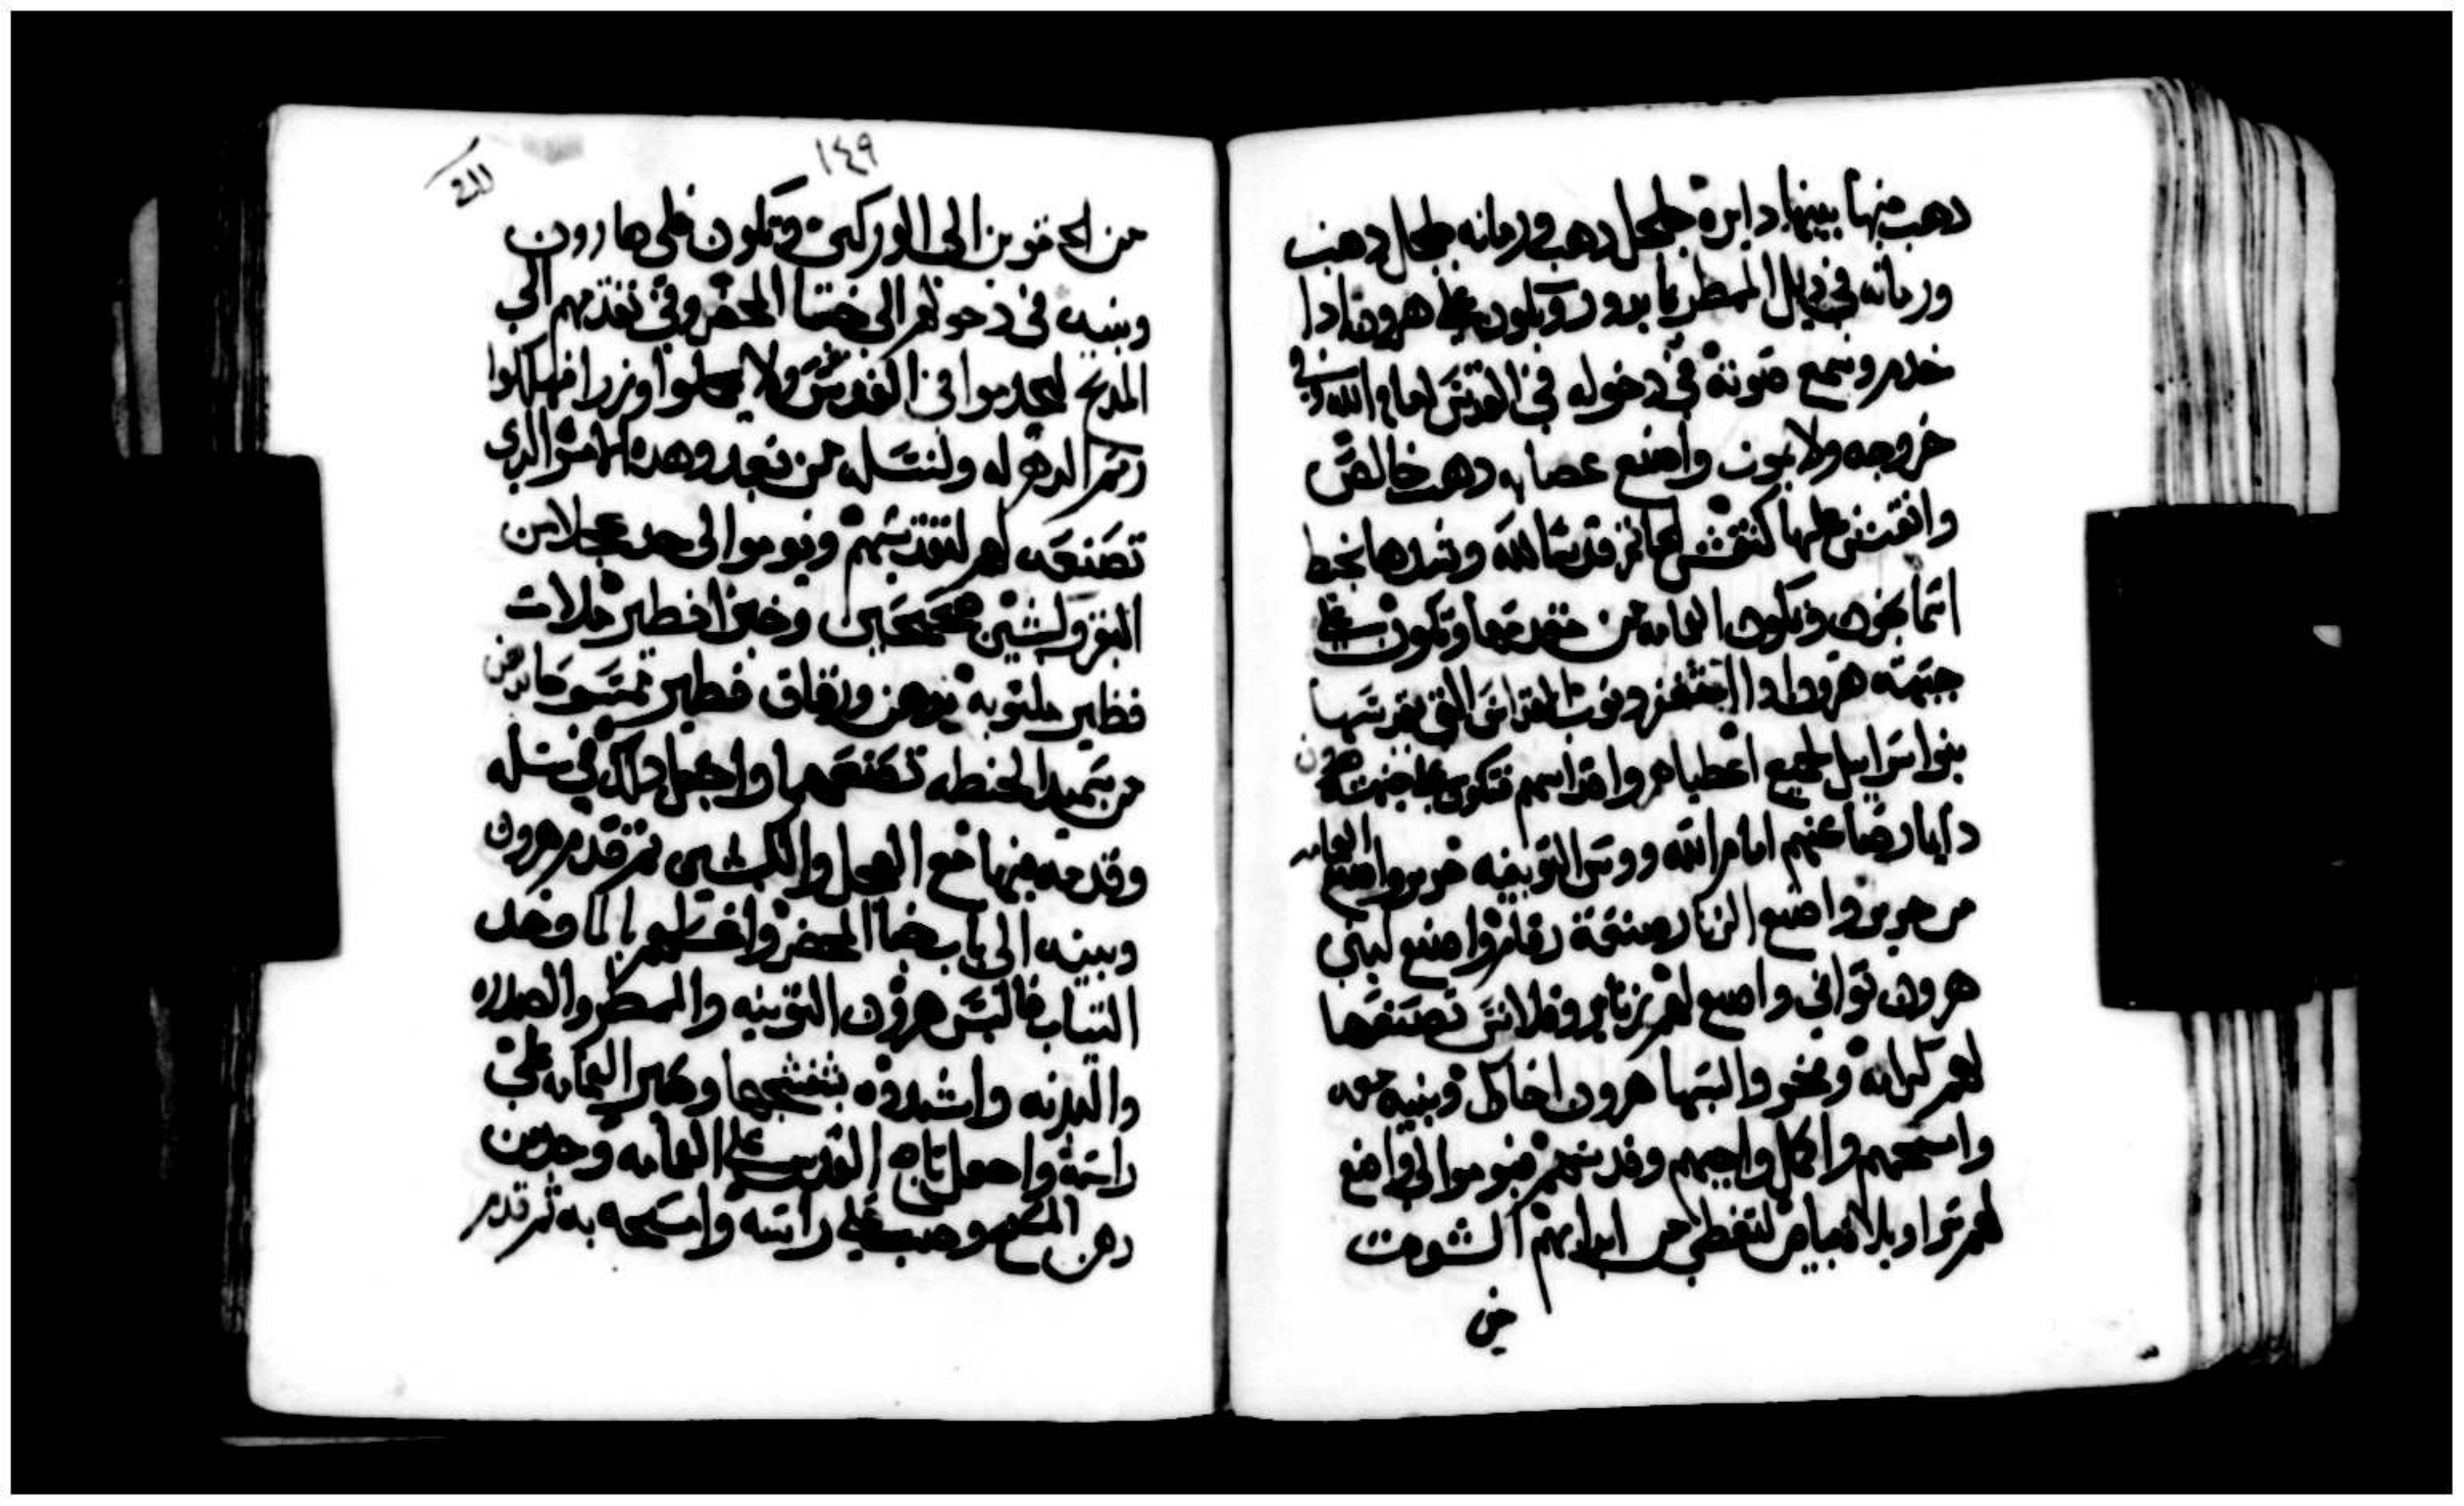 دهب منها بينها دايره جلجل دهب ورمانه جلجل دهب
ورمانه في ديل الممطر بما يدور وتكون على هرون ادا
خدم وسمع صوته في دخوله في القدس امام الله وفي
خروجه ولا يموت واصنع عصابه دهب خالص
وانقش عليها كنقش الخاتم قدس لله وشدها بخيط
اسمانجون وتكون العمامه من مقدمها وتكون على
جبهة هرون
بنوا اسراييل لجميع اعطياهم واقداسهم فتكون على جبهته
دايما رضا عنهم امام الله ووش التونيه حرير واصنع العمامه
من حرير واصنع الزنار صنعة رقام واصنع لبني
هرون تواني واصنع لهم زنانير وقلانس تصنعها
لهم كرامه وفخر والبسها هرون اخاك وبنيه معه
وامسحهم واكمل واجبهم وقدسهم فيوموا لي واصنع
لهم سراويلا بياض لتغطي من ابدانهم الشوت
من
١٤٩
من الحقوين الى الوركين وتكون على هارون
وبنيه في دخولهم الى خبا المحضر وفي تقدمهم الى
المدبح ليخدموا في القدس ولا يحملوا وزرا فيهلكوا
رسم الدهر له ولنسله من بعده وهدا الامر الدي
تصنعه لهم لتقدسهم ويوموا لي خد عجلا من
البقر وكبشين صحيحين وخبزا فطير ملات
فطير ملتوته بدهن ورقاق فطير ممسوحا بدهن
من سميد الحنطه تصنعهما واجعل دلك في سله
وقدمه منها مع العجل والكبشين تم قدم هرون
وبنيه الى باب خبا المحضر واغسلهم بالما وخد
التياب فالبس هرون التونيه والممطر والصدره
والبدنه واشدده بشفشجها وصير العمامه على
راسه واجعل تاج القدس على العمامه وخد من
دهن المسح وصب على راسه وامسحه به تم قدم